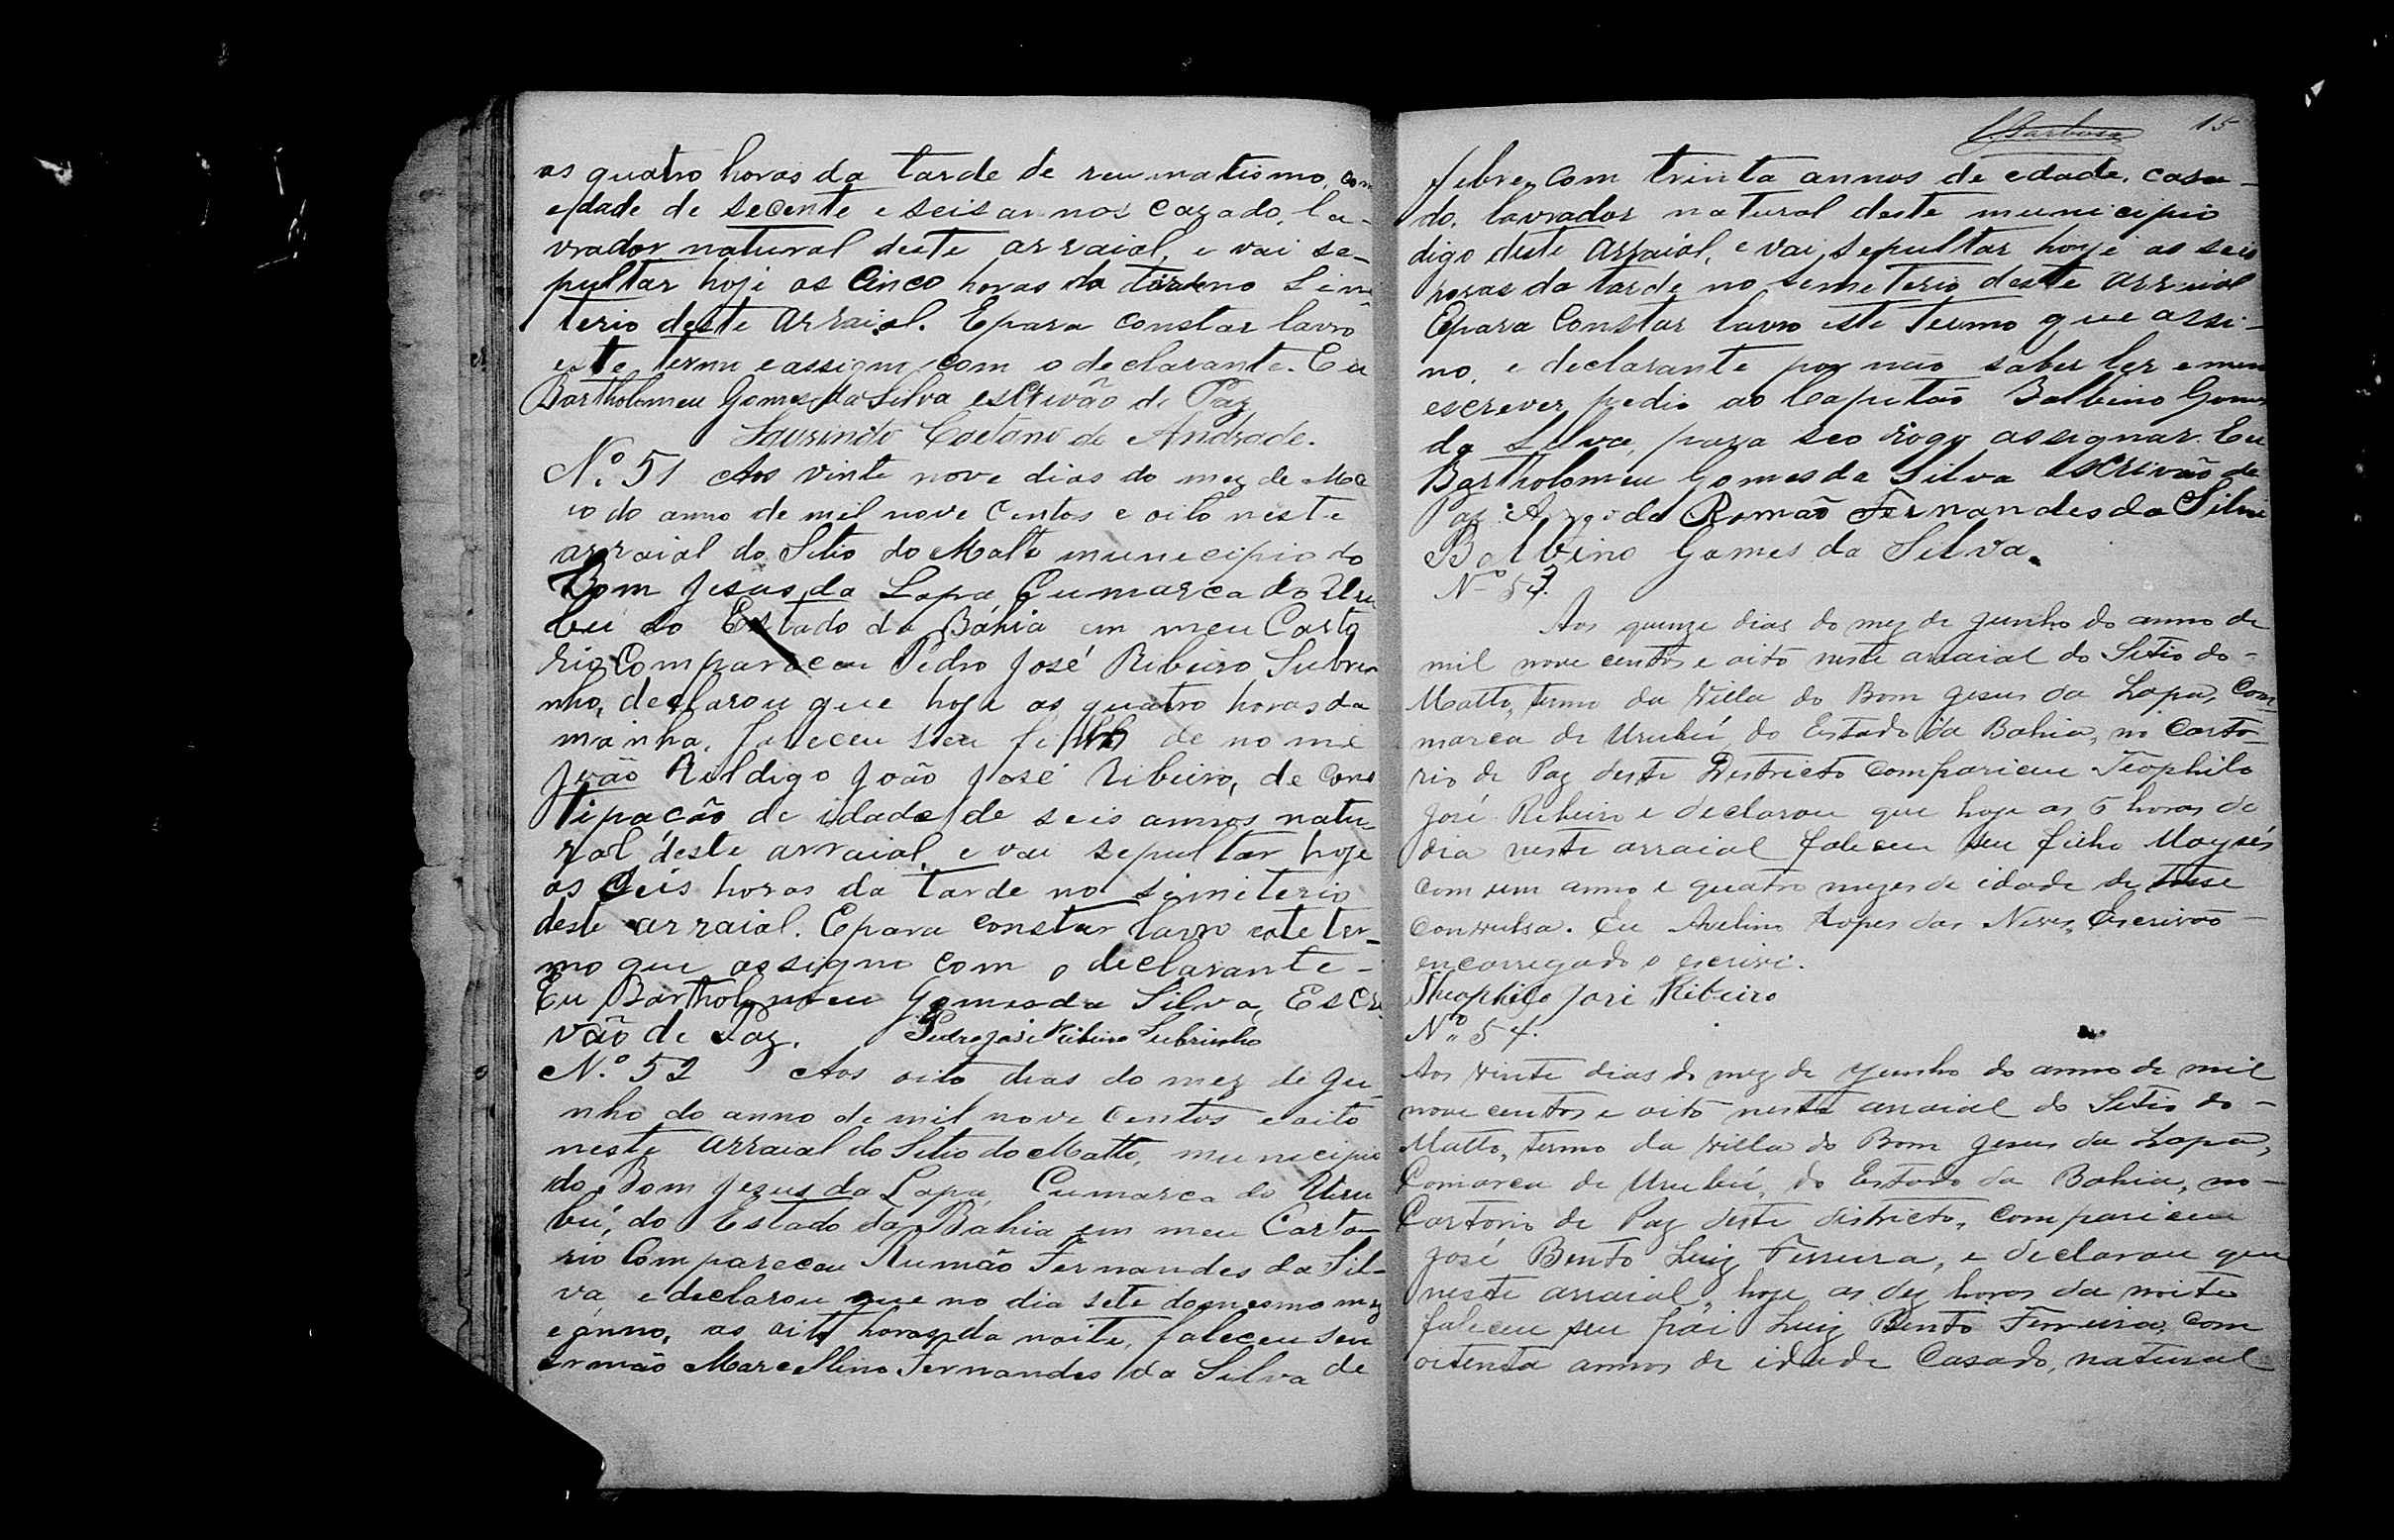 as quatro horas da tarde de reumatismo, com
edade de secente e seis annos cazado, la-
vrador natural deste arraial, e vai se-
pultar hoje as Cinco horas da tarde no Sim
terio deste arraial. Epara constar lavro
este termo e assigno com o declarante. Eu
Bartholomeu Gomes da Silva escrivão de Paz
Laurindo Caetano de Andrade.
Nº. 51 Aos vinte nove dias do mez de Ma
io do anno de mil nove Centos e oito neste
arraial do Sitio do Matto municipio do
Bom Jesus da Lapa Cumarca do Uru
bú do Estado da Bahia em meu Carto
rio Compareceu Pedro José Ribeiro Subri
nho, declarou que hoje as quatro horas da
manha, faleceu seu filho de nome
João digo João José Ribeiro, de Cons
tipacão de idade de seis annos natu-
ral deste arraial, e vai sepultar hoje
as Seis horas da tarde no simiterio
deste arraial. Epara constar lavro este ter-
mo que assigno com o declarante-
Eu Bartholomeu Gomes da Silva, Escri
vão de Paz. Pedro José Ribeiro Subrinho
Nº. 52 Aos oito dias do mez de Ju
nho do anno de mil nove Centos e oito
neste arraial do Sitio do Matto, municipio
do Bom Jezus da Lapa, Cumarca do Uru
bú, do Estado da Bahia em meu Carto
rio Compareceu Rumão Fernandes da Sil-
va e declarou que no dia sete do mesmo mez
e anno, as oito horas da noite, faleceu seu
irmão Marcellino Fernandes da Silva de
Barbosa 15
febre, com trinta annos de edade, casa-
do, lavrador natural deste municipio
digo deste arraial, e vai sepultar hoje as seis
horas da tarde no Semeterio deste arraial
Epara Constar lavro este termo que assi-
no, e declarante por não saber ler e nem
escrever pedio ao Capitão Balbino Gomes
da Silva, para seo rogo assignar. Eu
Bartholomeu Gomes da Silva escrivão de
Paz. Arogo de Romaõ Fernandes da Silva
Balbino Gomes da Silva.
Nº 53.
Aos quinze dias do mez de Junho do anno de
mil nove centos e oito neste arraial do Sitio do-
Matto, termo da Villa do Bom Jesus da Lapa, Com-
marca de Urubú, do Estado da Bahia, no Carto-
rio de Paz deste Destricto compareceu Teophilo
José Ribeiro e declarou que hoje as 6 horas do
dia neste arraial faleceu seu filho Moysés
com um anno e quatro mezes de idade de tosse
convulsa. Eu Avelino Lopes das Neves, Escrivão-
encarregado o escrivi.
Theophilo José Ribeiro
Nº 54.
Aos vinte dias do mez de Junho do anno de mil
nove centos e oito neste arraial do Sitio do-
Matto, termo da Villa do Bom Jesus da Lapa,
Comarca de Urubú, do Estado da Bahia, no-
Cartorio de Paz deste districto, compareceu
José Bento Luiz Ferreira, e declarou que
neste arraial, hoje as dez horas da noite
faleceu seu pai Luiz Bento Ferreira, com
oitenta annos de idade Casado, natural